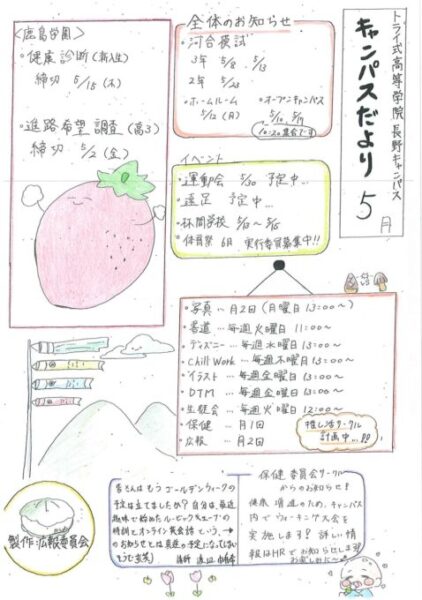 トライ式高等学院 長野キャンパス
キャンパスだより
5月
全体のお知らせ
・河合模試
3年 5/8、5/13
2年 5/23
・ホームルーム
5/12 (月)
・オープンキャンパス
5/10、5/17
10:20集合です
<鹿島学園>
・健康診断(新入生)
締切 5/15 (木)
・進路希望調査(高3)
締切 5/2 (金)
イベント
・運動会 5/30 予定中…
・遠足 予定中…
・林間学校
・体育祭 6月 実行委員募集中!!
・写真…月2回(月曜日13:00〜)
・書道…毎週火曜日 11:00〜
・ディズニー…毎週水曜日 13:00〜
・Chill Work…毎週木曜日 13:00〜
・イラスト…毎週金曜日 13:00〜
・DTM…毎週金曜日 13:00〜
・生徒会…毎週火曜日 12:00〜
・保健…月1回
・広報…月2回
推し活サークル
計画中…!!
皆さんはもうゴールデンウィークの
予定は立てましたか?自分は、最近
趣味で始めたルービックキューブの
特訓とオンライン英会話という、
保健委員会サークル
からのお知らせ!
健康増進のため、キャンパス
内でウォーキング大会を
実施します?詳しい情
報はHRでお知らせします
お楽しみに〜
製作:広報委員会